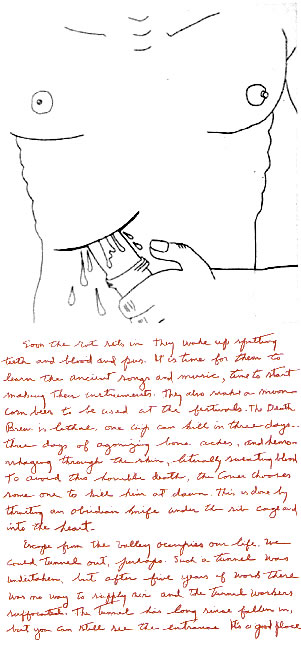 Soon the rot sets in They wake up spitting
teeth and blood and pus. It is time for them to
learn the ancient songs and music, time to start
making their instruments. They also make a
corn beer to be used at the festivals. The Death
Brew is lethal. one cup can kill in three days..
three days of agonizing bone aches, and hemo-
rrhaging through the skin, literally sweating blood
To avoid this horrible death, the Comer chooses
some one to kill him at dawn. This is done by
thrusting an obsidian knife under the rib cage and
into the heart.
Escape from the Valley occupies our life. We
could tunnel out, perhaps. Such a tunnel was
undertaken, but after five years of work there
was no way to supply air and the tunnel workers
suffocated. The tunnel has long since fallen in,
but you can still see the entrance It's a good place